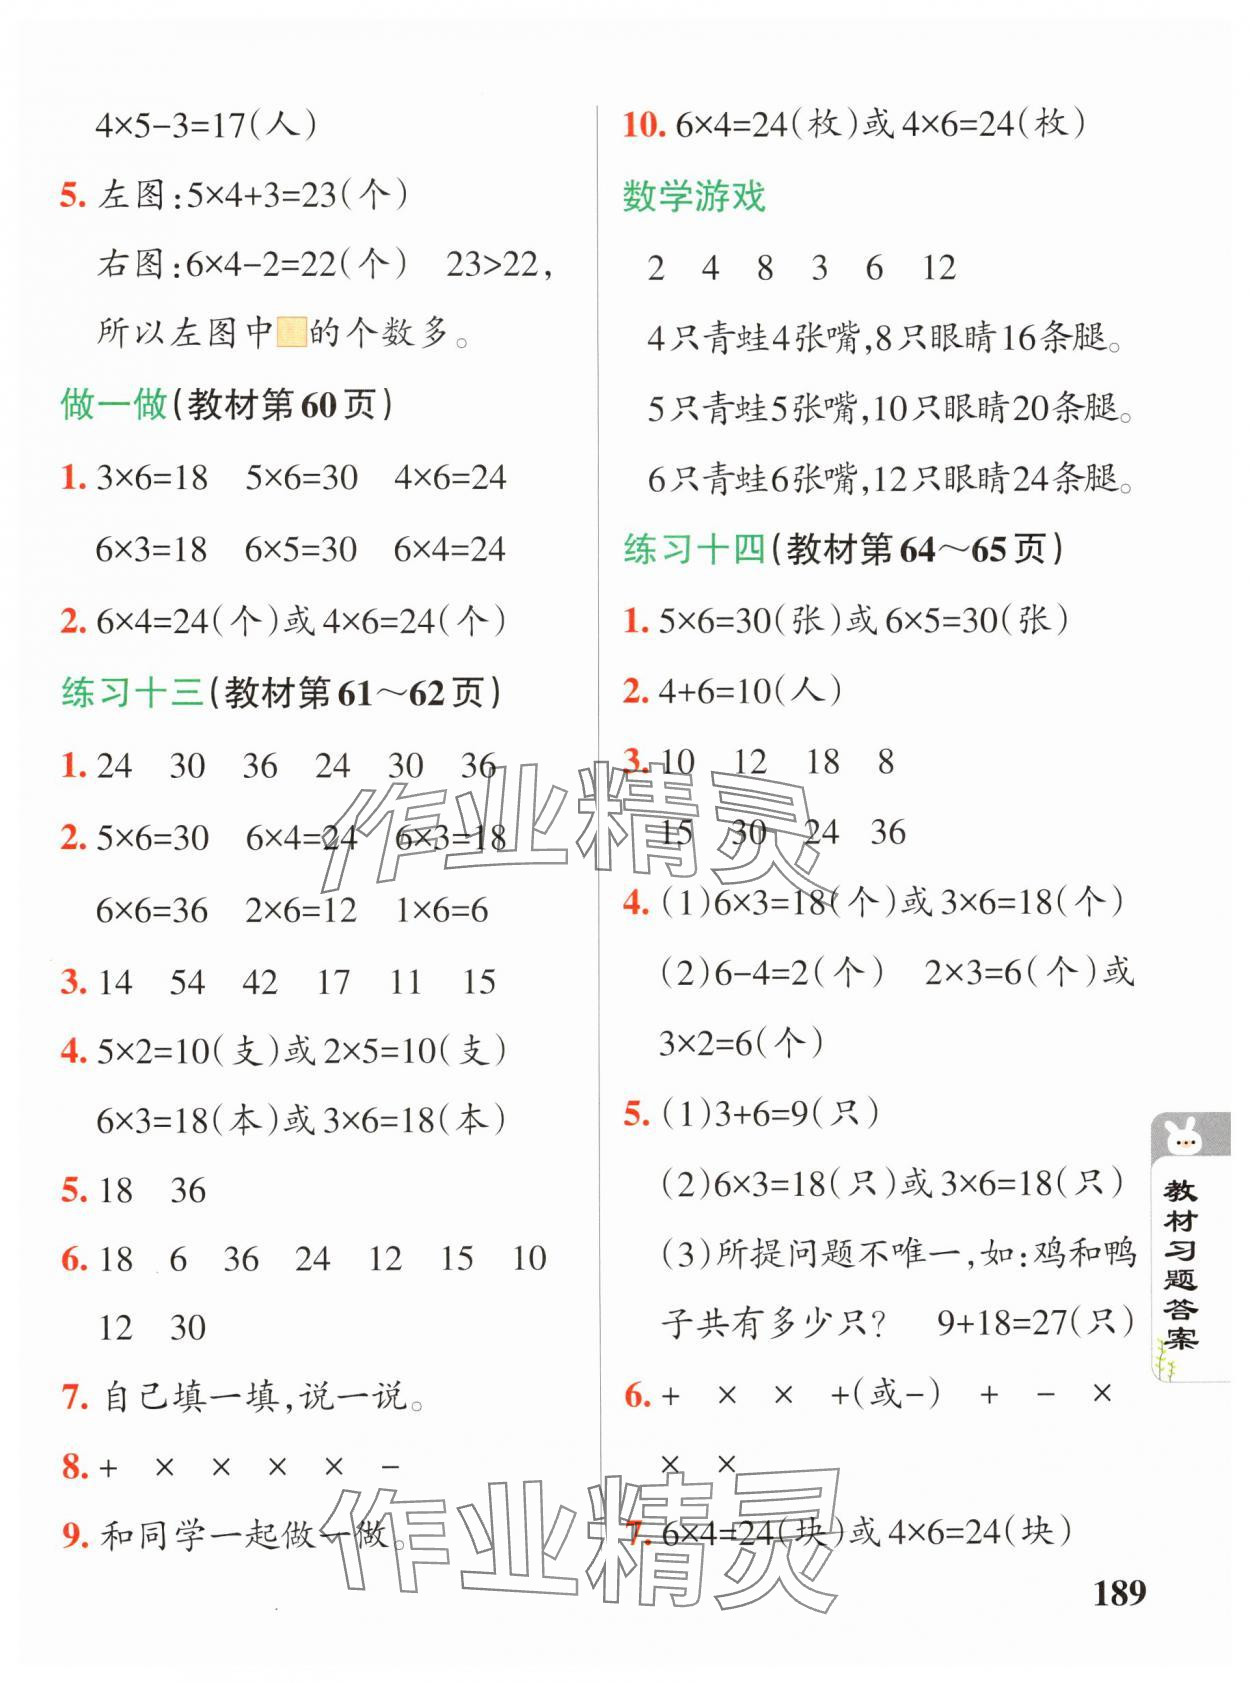 4×5-3=17(人)
5. 左图:5×4+3=23(个)
右图:6×4-2=22(个) 23>22,
所以左图中的个数多。
做一做(教材第60页)
1. 3×6=18 5×6=30 4×6=24
6×3=18 6×5=30 6×4=24
2. 6×4=24(个)或4×6=24(个)
练习十三(教材第61～62页)
1. 24 30 36 24 30 36
2. 5×6=30 6×4=24 6×3=18
6×6=36 2×6=12 1×6=6
3. 14 54 42 17 11 15
4. 5×2=10(支)或2×5=10(支)
6×3=18(本)或3×6=18(本)
5. 18 36
6. 18 6 36 24 12 15 10
12 30
7. 自己填一填,说一说。
8. + × × × × -
9. 和同学一起做一做。
10. 6×4=24(枚)或4×6=24(枚)
数学游戏
2 4 8 3 6 12
4只青蛙4张嘴,8只眼睛16条腿。
5只青蛙5张嘴,10只眼睛20条腿。
6只青蛙6张嘴,12只眼睛24条腿。
练习十四(教材第64～65页)
1. 5×6=30(张)或6×5=30(张)
2. 4+6=10(人)
3. 10 12 18 8
15 30 24 36
4. (1)6×3=18(个)或3×6=18(个)
(2)6-4=2(个) 2×3=6(个)或
3×2=6(个)
5. (1)3+6=9(只)
(2)6×3=18(只)或3×6=18(只)
(3)所提问题不唯一,如:鸡和鸭
子共有多少只? 9+18=27(只)
6. + × × +(或-) + - ×
× ×
7. 6×4=24(块)或4×6=24(块)
教材习题答案
189
作业精灵
作业精灵